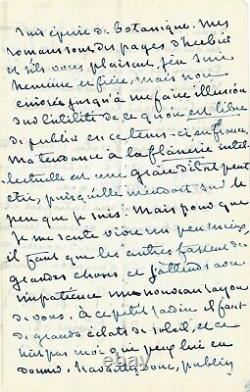 suis éprise de botanique. Mes
romans sont des pages d'herbier
et s'ils vous plaisent, j'en suis
heureuse et fière, mais non
jusqu'à me faire illusion
sur l'utilité de ce qu'on est libre
de publier en ce tems-ci en france.
ma tendance à la flânerie intel-
lectuelle est une grace d'état peut
être, puisqu'elle m'endort sur le
peu que je suis. Mais pour que
je me sente vivre un peu mieux,
il faut que les autres fassent de
grandes choses et j'attends avec
impatience un nouveau rayon
de vous. à ce petit jardin il faut
de grands éclats de soleil, et ce
n'est pas moi qui peux lui en
donner. travaillez donc, publiez